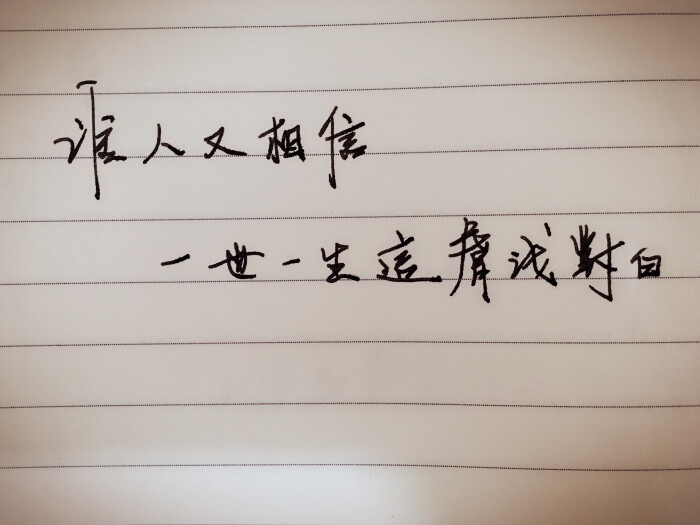 谁人又相信
一世一生這膚浅對白